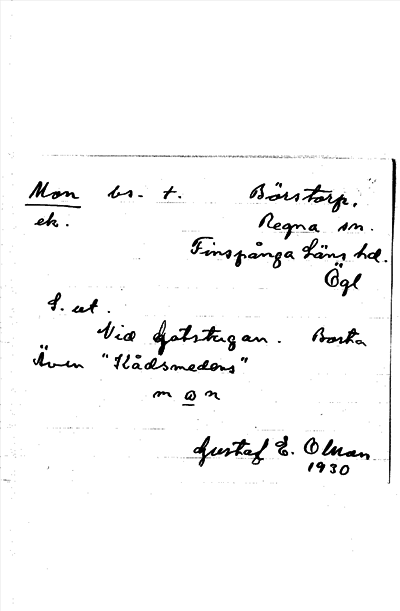 Mon bs. t. Börstorp,
ek. Regna sn.
Finspånga läns hd.
Ögl
S. ut.
Vid Gatstugan. Borta
Även "Klådsmedens"
m o n
Gustaf E. Olson
1930